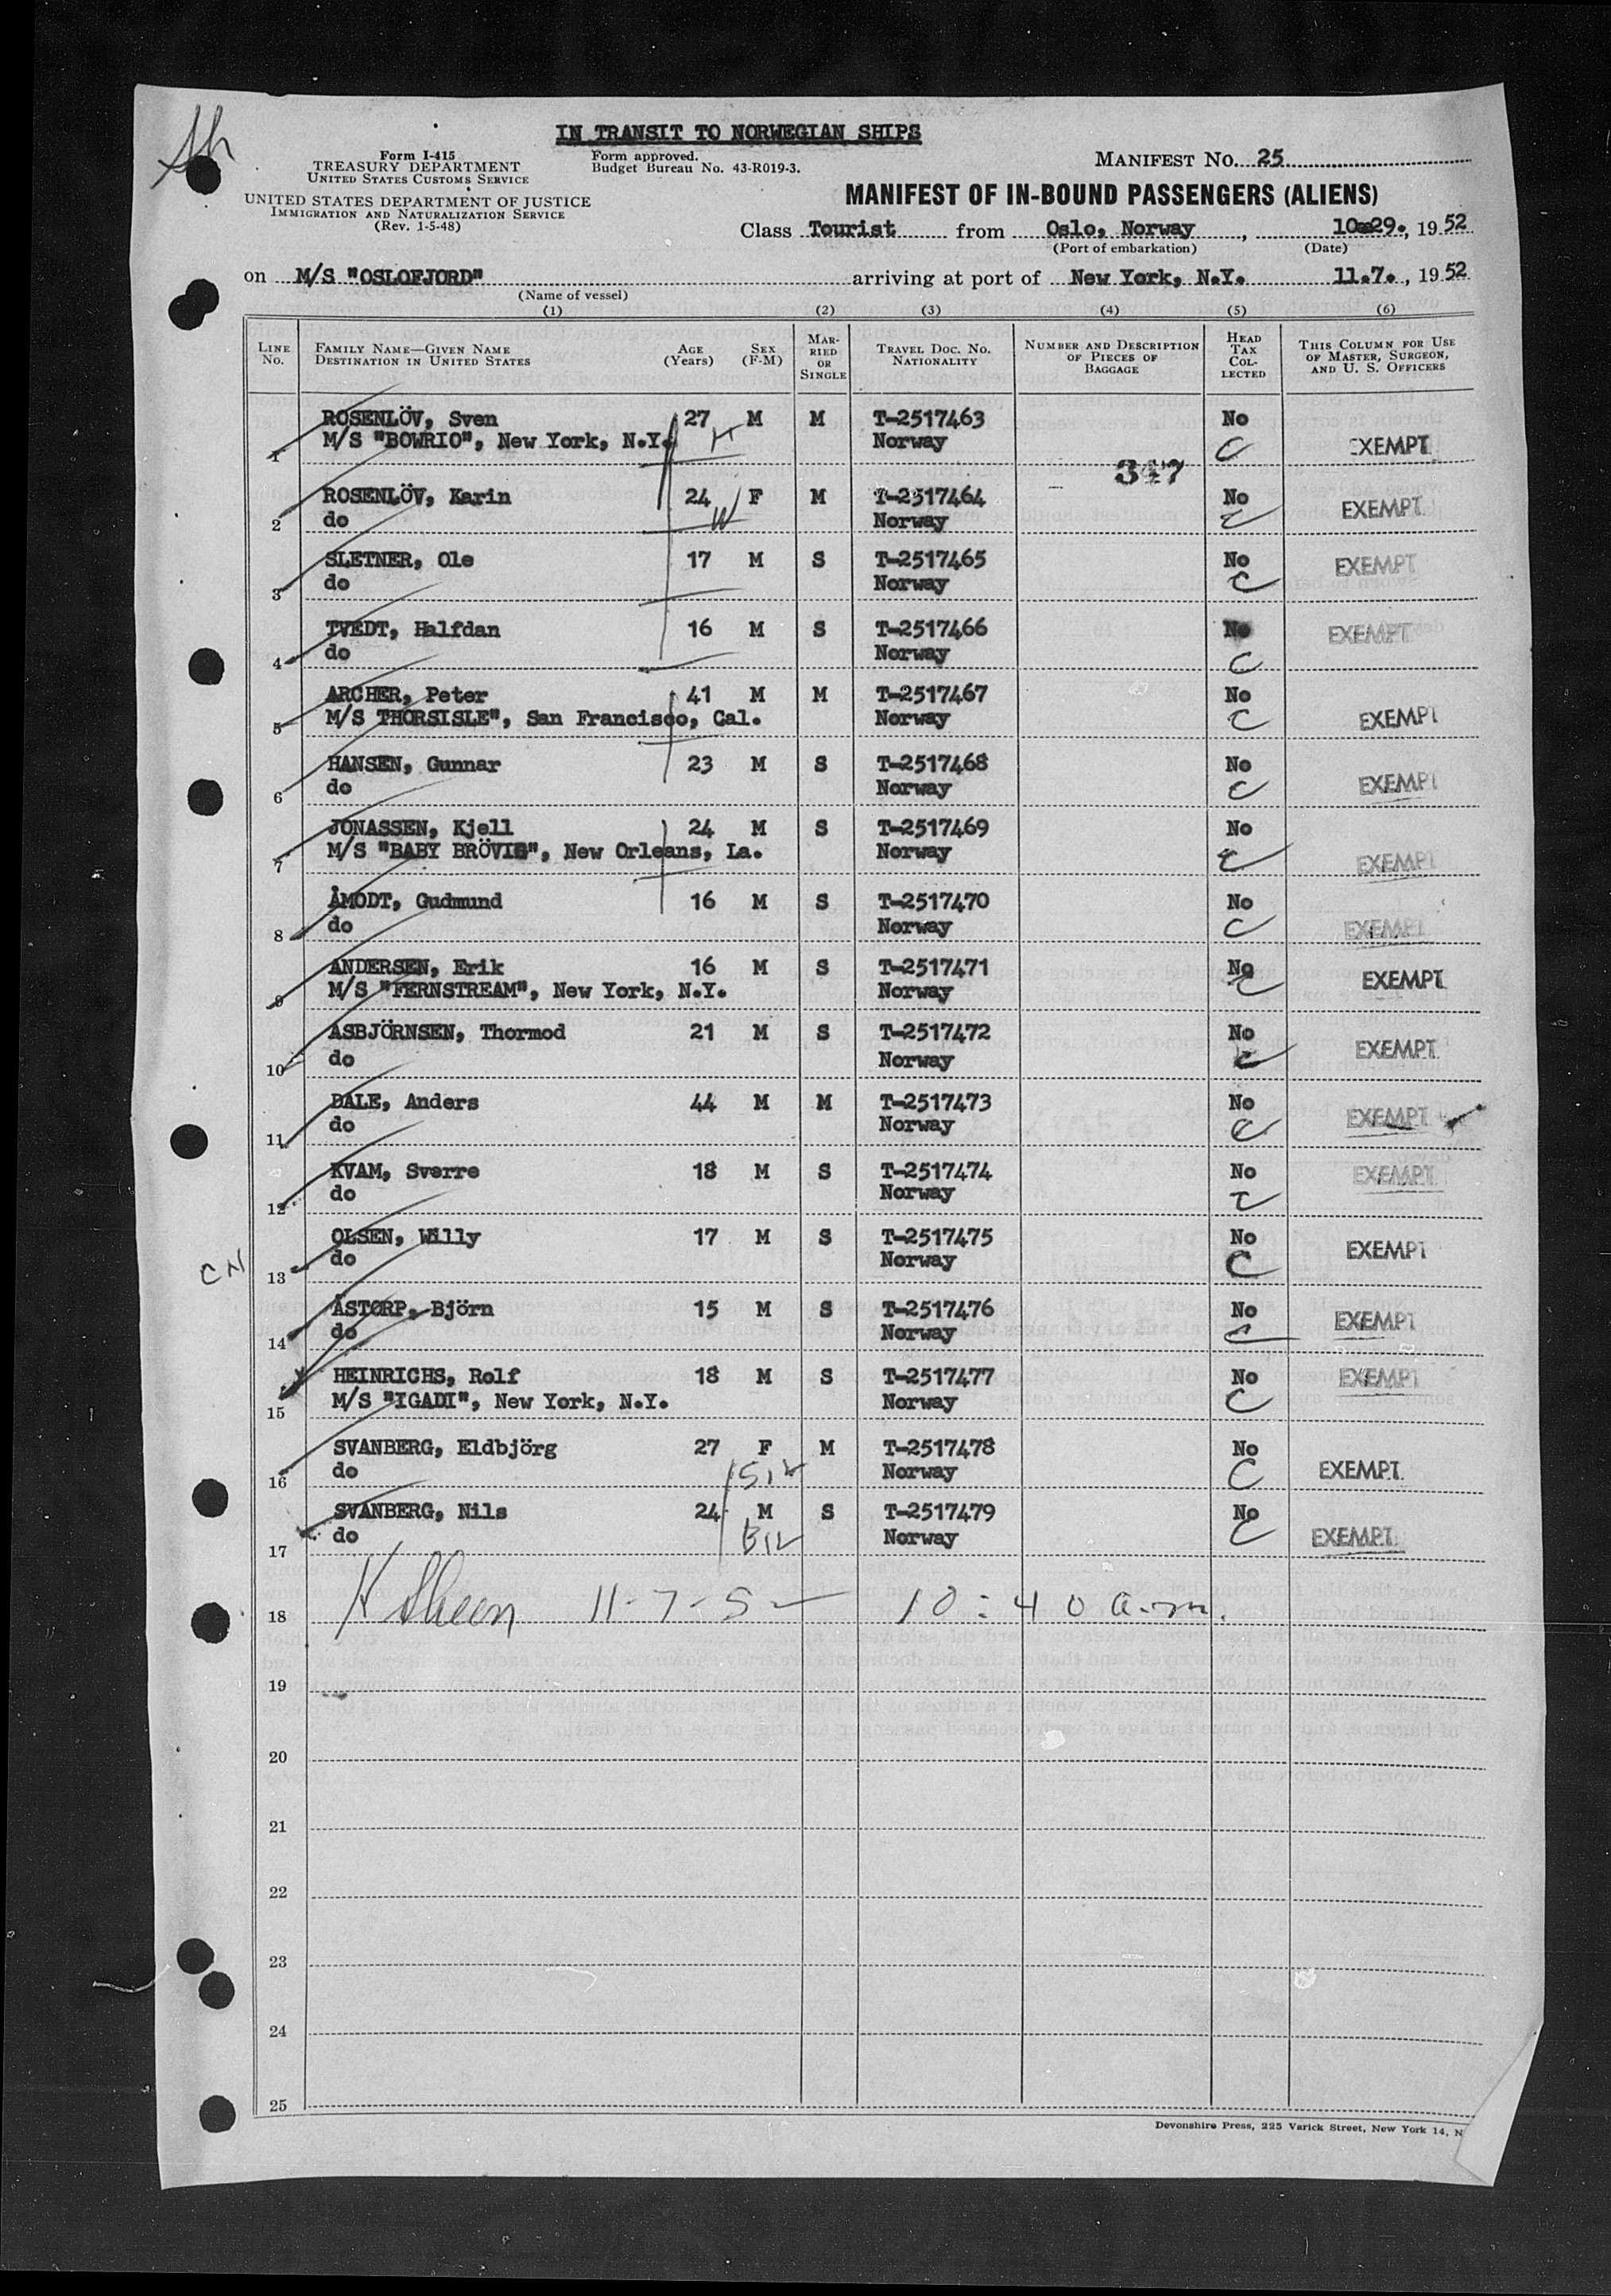 IN TRANSIT TO NORWEGIAN SHIPS
Form I-415
TREASURY DEPARTMENT
UNITED STATES CUSTOMS SERVICE
UNITED STATES DEPARTMENT OF JUSTICE
IMMIGRATION AND NATURALIZATION SERVICE
(Rev. 1-5-48)
Form approved.
Budget Bureau No. 43-R019-3.
MANIFEST No. 25
MANIFEST OF IN-BOUND PASSENGERS (ALIENS)
Class Tourist from Oslo, Norway, 10-29., 1952
(Port of embarkation) (Date)
on M/S "OSLOFJORD" arriving at port of New York, N.Y. 11.7., 1952
(Name of vessel)
(1) (2) (3) (4) (5) (6)
LINE No. FAMILY NAME—GIVEN NAME DESTINATION IN UNITED STATES AGE (Years) SEX (F-M) MARRIED OR SINGLE TRAVEL DOC. NO. NATIONALITY NUMBER AND DESCRIPTION OF PIECES OF BAGGAGE HEAD TAX COLLECTED THIS COLUMN FOR USE OF MASTER, SURGEON, AND U. S. OFFICERS
ROSENLÖV, Sven 27 M M T-2517463 No
1 M/S "BOWRIO", New York, N.Y. H Norway C EXEMPT
347
ROSENLÖV, Karin 24 F M T-2517464 No
2 do W Norway C EXEMPT
SLETNER, Ole 17 M S T-2517465 No
3 do Norway C EXEMPT
TVEDT, Halfdan 16 M S T-2517466 No
4 do Norway C EXEMPT
ARCHER, Peter 41 M M T-2517467 No
5 M/S THORSISLE", San Francisco, Cal. Norway C EXEMPT
HANSEN, Gunnar 23 M S T-2517468 No
6 do Norway C EXEMPT
JONASSEN, Kjell 24 M S T-2517469 No
7 M/S "BABY BRÖVIG", New Orleans, La. Norway C EXEMPT
ÅMODT, Gudmund 16 M S T-2517470 No
8 do Norway C EXEMPT
ANDERSEN, Erik 16 M S T-2517471 No
9 M/S "FERNSTREAM", New York, N.Y. Norway C EXEMPT
ASBJÖRNSEN, Thormod 21 M S T-2517472 No
10 do Norway C EXEMPT
DALE, Anders 44 M M T-2517473 No
11 do Norway C EXEMPT
KVAM, Sverre 18 M S T-2517474 No
12 do Norway C EXEMPT
OLSEN, Willy 17 M S T-2517475 No
CN 13 do Norway C EXEMPT
ÅSTORP, Björn 15 M S T-2517476 No
14 do Norway C EXEMPT
HEINRICHS, Rolf 18 M S T-2517477 No EXEMPT
15 M/S "IGADI", New York, N.Y. Norway C
SVANBERG, Eldbjörg 27 F M T-2517478 No
16 do Norway C EXEMPT
SVANBERG, Nils 24 M S T-2517479 No
17 do Norway C EXEMPT
18 11-7-52 10:40 a.m.
19
20
21
22
23
24
25
Devonshire Press, 225 Varick Street, New York 14, N